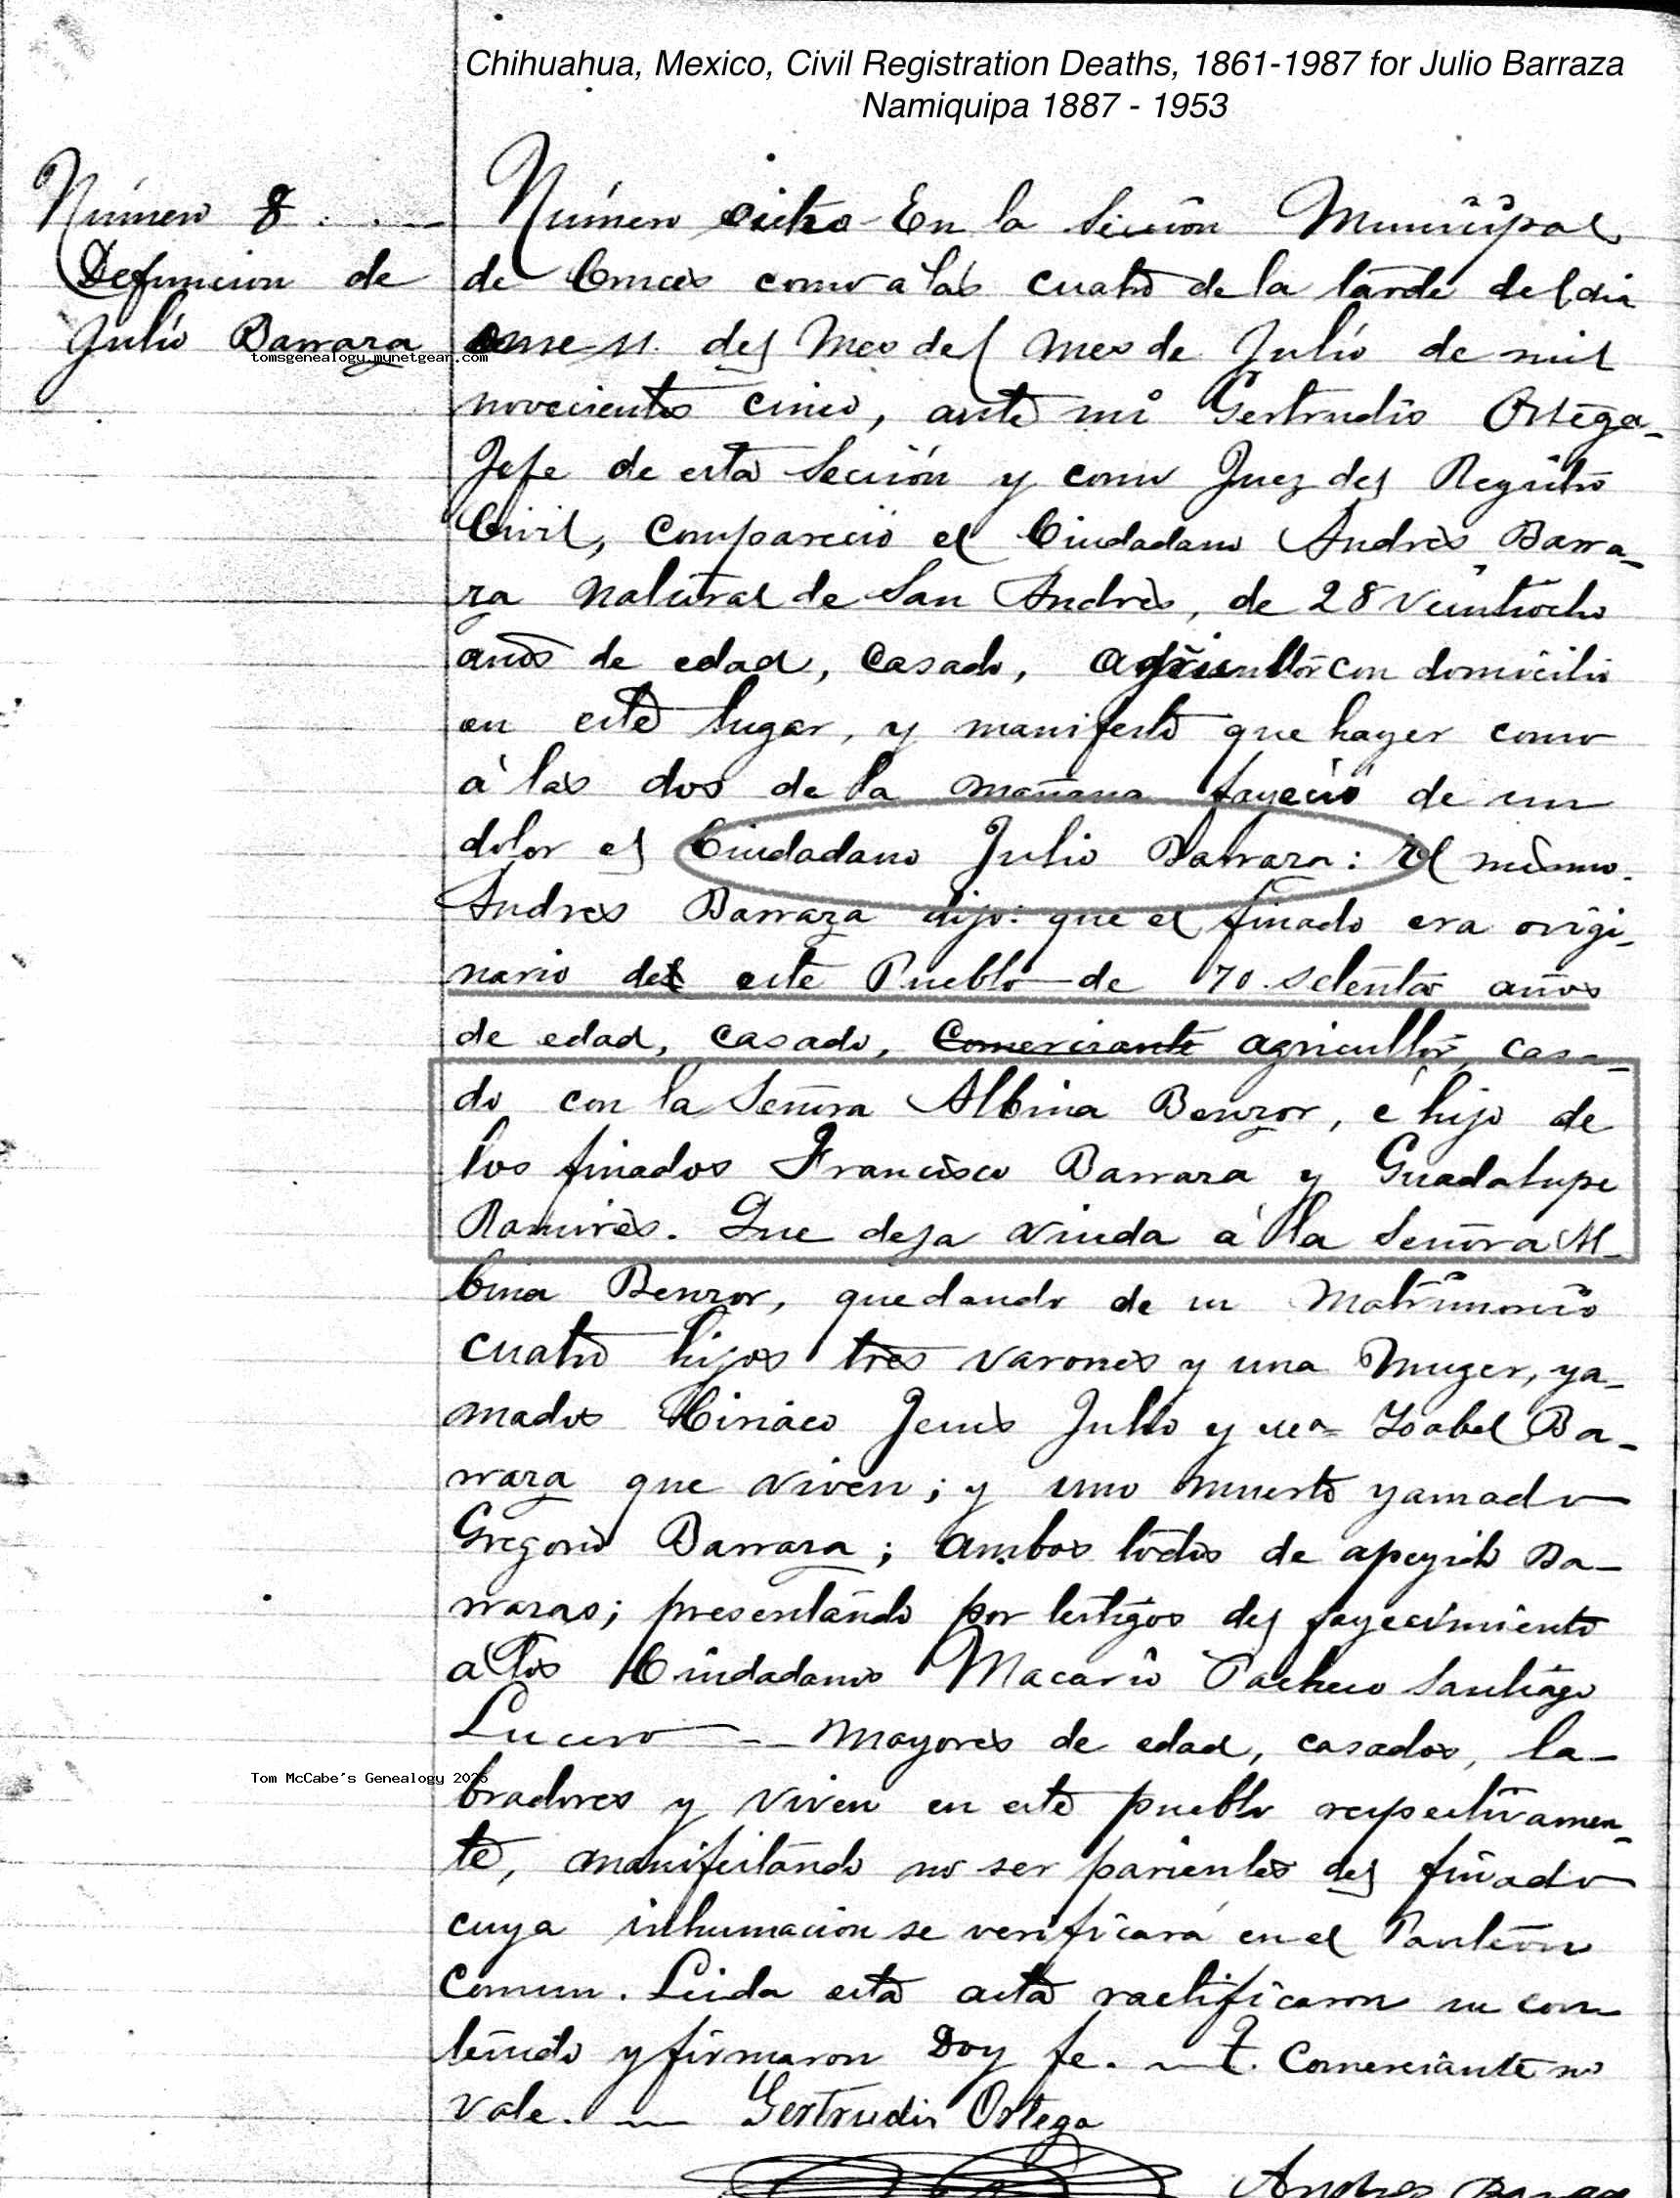 Chihuahua, Mexico, Civil Registration Deaths, 1861-1987 for Julio Barraza
Namiquipa 1887 - 1953
Número 8
Defuncion de
Julio Barraza
tomsgenealogy.mynetgear.com
Número ocho - En la Sección Municipal
de Cruces como a las cuatro de la tarde del dia
onse 11. del Mes del mes de Julio de mil
novecientos cinco, ante mi Gertrudis Ortega
Jefe de esta Sección y como Juez del Registro
Civil, compareció el Ciudadano Andrès Barra-
za natural de San Andrès, de 28 veintiocho
años de edad, casado, agricultor con domicilio
en este lugar, y manifestó que hayer como
à las dos de la mañana fayeció de un
dolor el Ciudadano Julio Barraza: El mismo
Andres Barraza dijo: que el finado era origi-
nario del este Pueblo de 70 setenta años
de edad, casado, Comerciante agricultor, casa-
do con la Señora Albina Benzor, é hijo de
los finados Francisco Barraza y Guadalupe
Ramirès. Que deja viuda á la Señora Al-
bina Benzor, quedando de su Matrimonio
cuatro hijos tres varones y una Muger, ya-
mados Ciriaco Jesus Julio y Ma Ysabel Ba-
rraza que viven; y uno muerto yamado
Gregorio Barraza; ambos todos de apeyido Ba-
rrazas; presentando por testigos del fayecimiento
a los Ciudadanos Macario Pacheco Santiago
Lucero -- Mayores de edad, casados, la-
Tom McCabe's Genealogy 2025
bradores y viven en este pueblo respectivamen-
te, manifestando no ser parientes del finado
cuya inhumacion se verificará en el Panteón
Comun. Leida esta acta ractificaron su con
tenido y firmaron Doy fe. — T. Comerciante no
vale. — Gertrudis Ortega
Andres Barraza